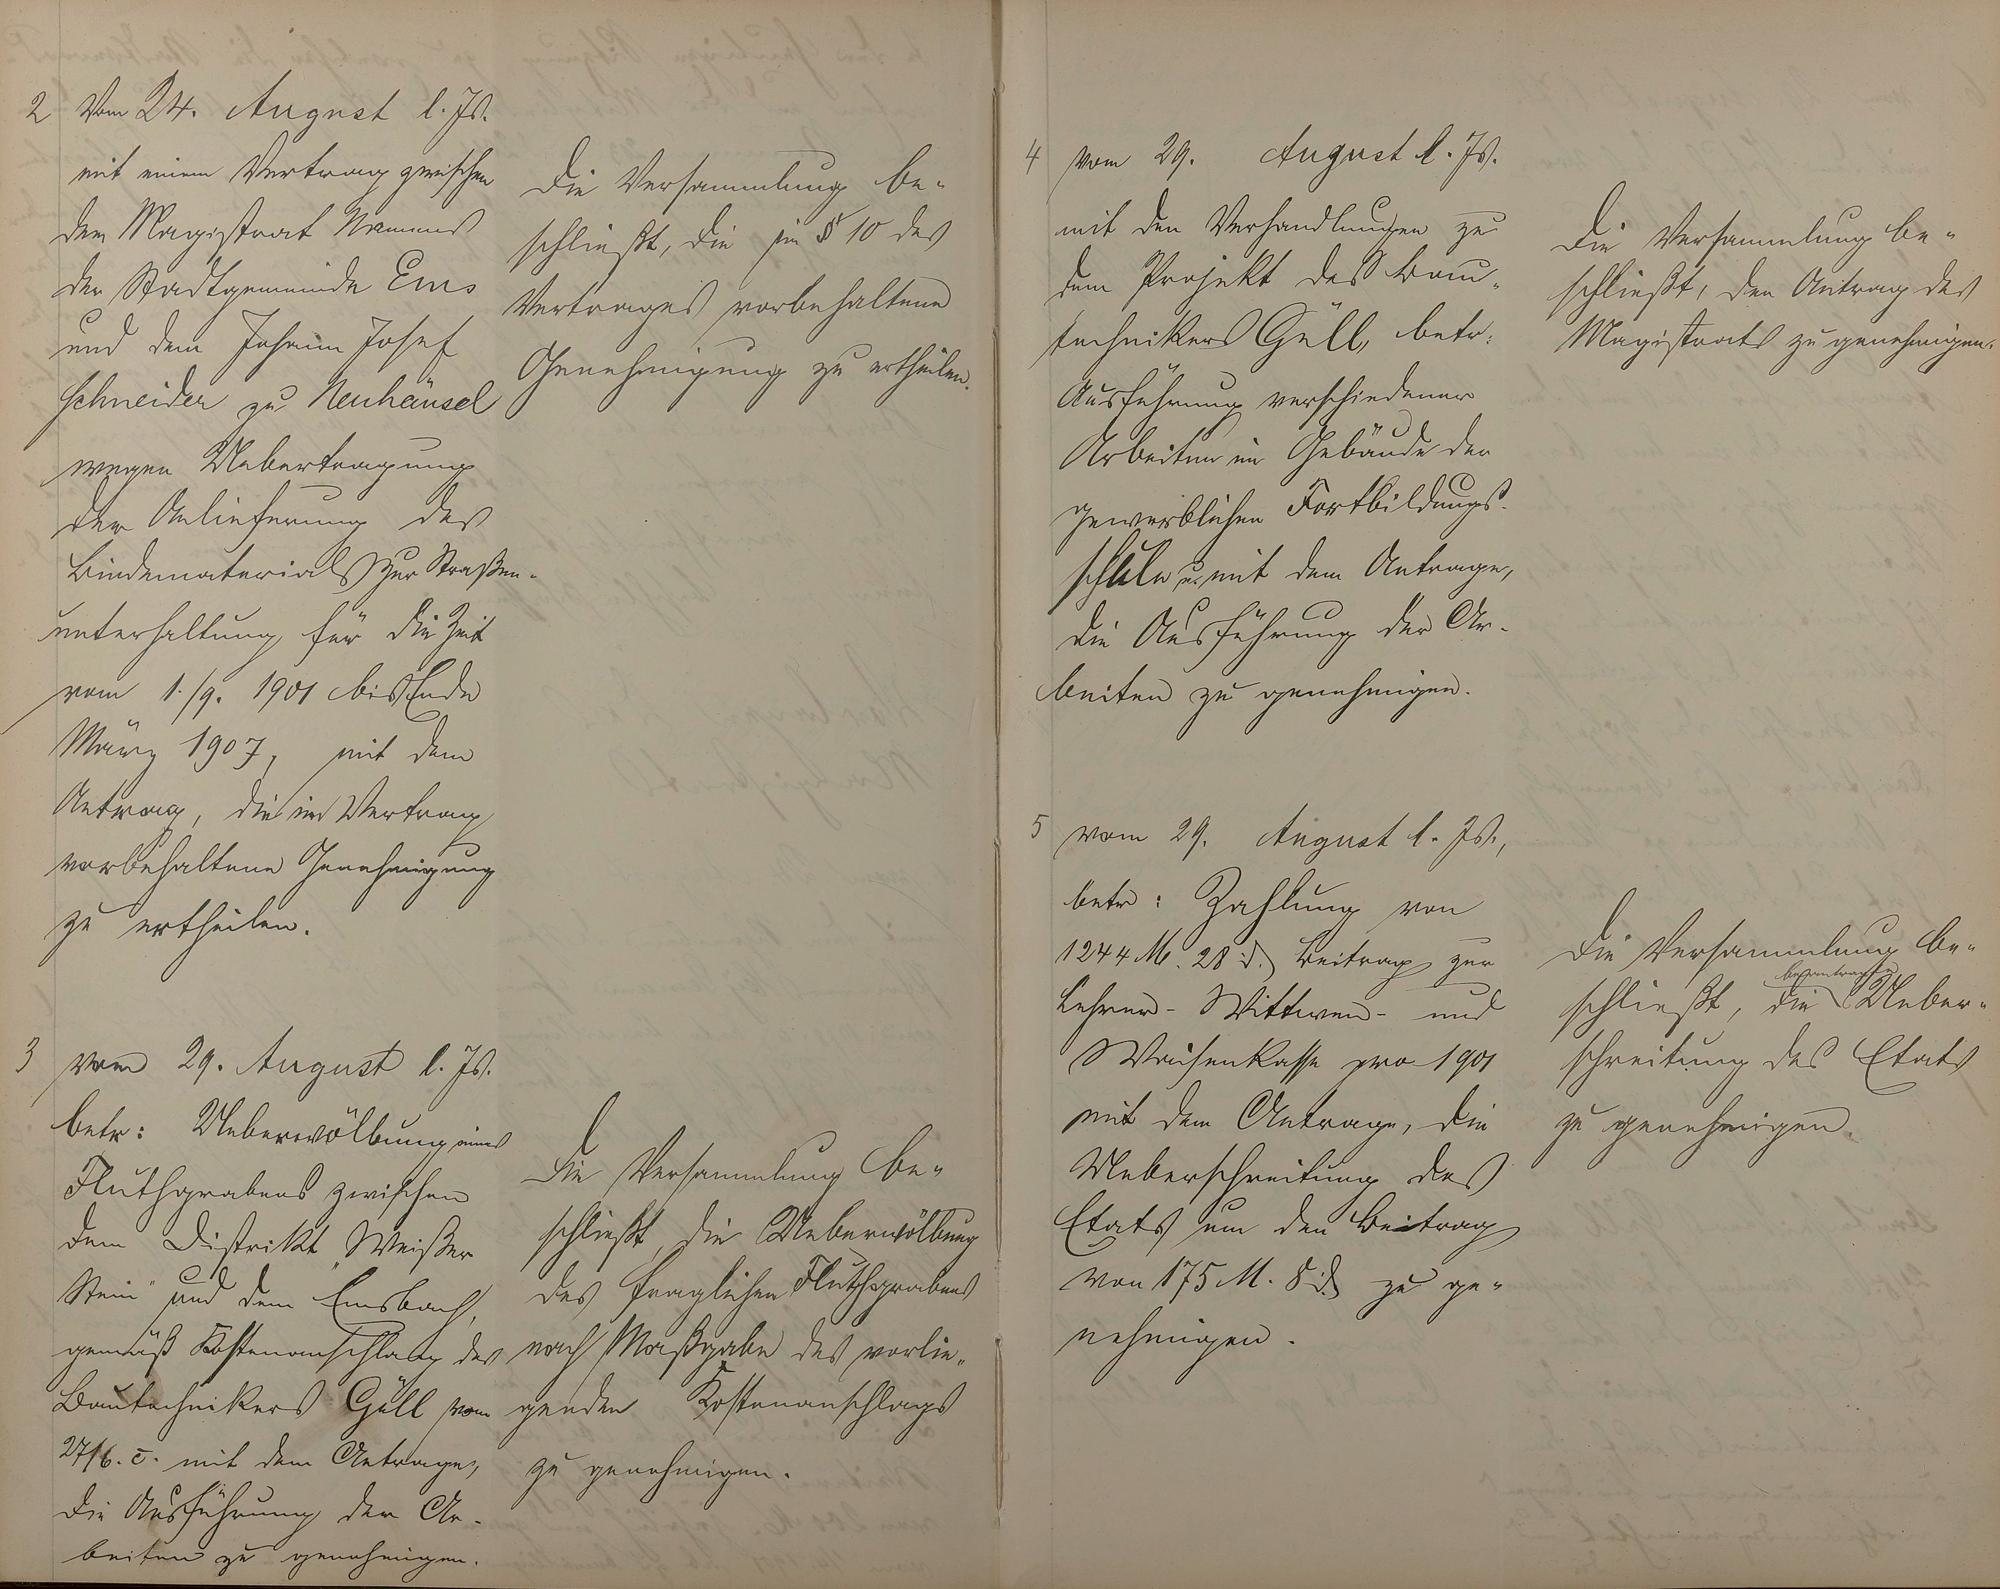 2 Vom 24. August l. Js.
mit einem Vertrag zwischen
dem Magistrat Namens
der Stadtgemeinde Ems
und dem Johann Josef
Schneider zu Neuhäusel
wegen Uebertragung
der Anlieferung des
Bindematerials zur Straßen-
unterhaltung für die Zeit
vom 1./9. 1901 bis Ende
März 1907, mit dem
Antrag, die im Vertrag
vorbehaltene Genehmigung
zu ertheilen.
Die Versammlung be-
schließt, die im § 10 des
Vertrages vorbehaltene
Genehmigung zu ertheilen.
3 vom 29. August l. Js.
betr: Ueberwölbung eines
Fluthgrabens zwischen
dem Distrikt „Weißer
Stein" und dem Emsbach,
gemäß Kostenanschlag des
Bautechnikers Güll vom
27/6. c. mit dem Antrage,
die Ausführung der Ar-
beiten zu genehmigen.
Die Versammlung be-
schließt, die Ueberwölbung
des fraglichen Fluthgrabens
nach Maßgabe des vorlie-
genden Kostenanschlags
zu genehmigen.
4 vom 29. August l. Js.
mit den Verhandlungen zu
dem Projekt des Bau-
technikers Güll, betr:
Ausführung verschiedener
Arbeiten im Gebäude der
gewerblichen Fortbildungs-
schule u. mit dem Antrage,
die Ausführung der Ar-
beiten zu genehmigen.
Die Versammlung be-
schließt, den Antrag des
Magistrats zu genehmigen.
5 vom 29. August l. Js.,
betr: Zahlung von
1244 M. 28 d. Beitrag zur
Lehrer- Wittwen- und
Waisenkasse pro 1901
mit dem Antrage, die
Ueberschreitung des
Etats um den Beitrag
von 175 M. 8 d. zu ge-
nehmigen.
Die Versammlung be-
schließt, die beantragte Ueber-
schreitung des Etats
zu genehmigen.